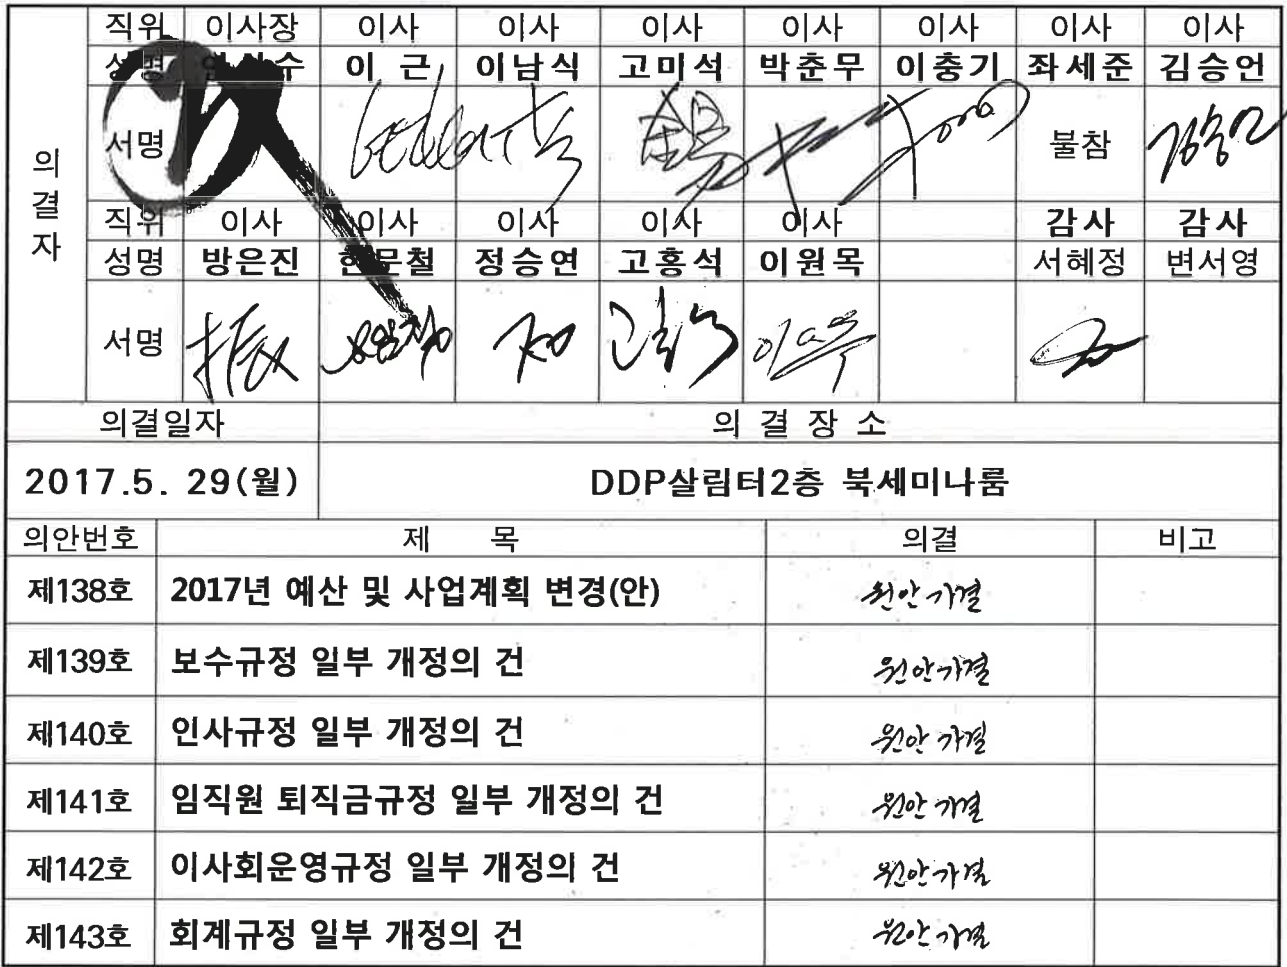 직위 이사장 이사 이사 이사 이사 이사 이사 이사
성명 수 이 근 이남식 고미석 박춘무 이충기 좌세준 김승언
의결자
서명 불참 김승언
직위 이사 이사 이사 이사 이사 감사 감사
성명 방은진 한문철 정승연 고홍석 이원목 서혜정 변서영
서명
의결일자 의 결 장 소
2017.5. 29(월) DDP살림터2층 북세미나룸
의안번호 제 목 의결 비고
제138호 2017년 예산 및 사업계획 변경(안) 원안가결
제139호 보수규정 일부 개정의 건 원안가결
제140호 인사규정 일부 개정의 건 원안가결
제141호 임직원 퇴직금규정 일부 개정의 건 원안가결
제142호 이사회운영규정 일부 개정의 건 원안가결
제143호 회계규정 일부 개정의 건 원안가결